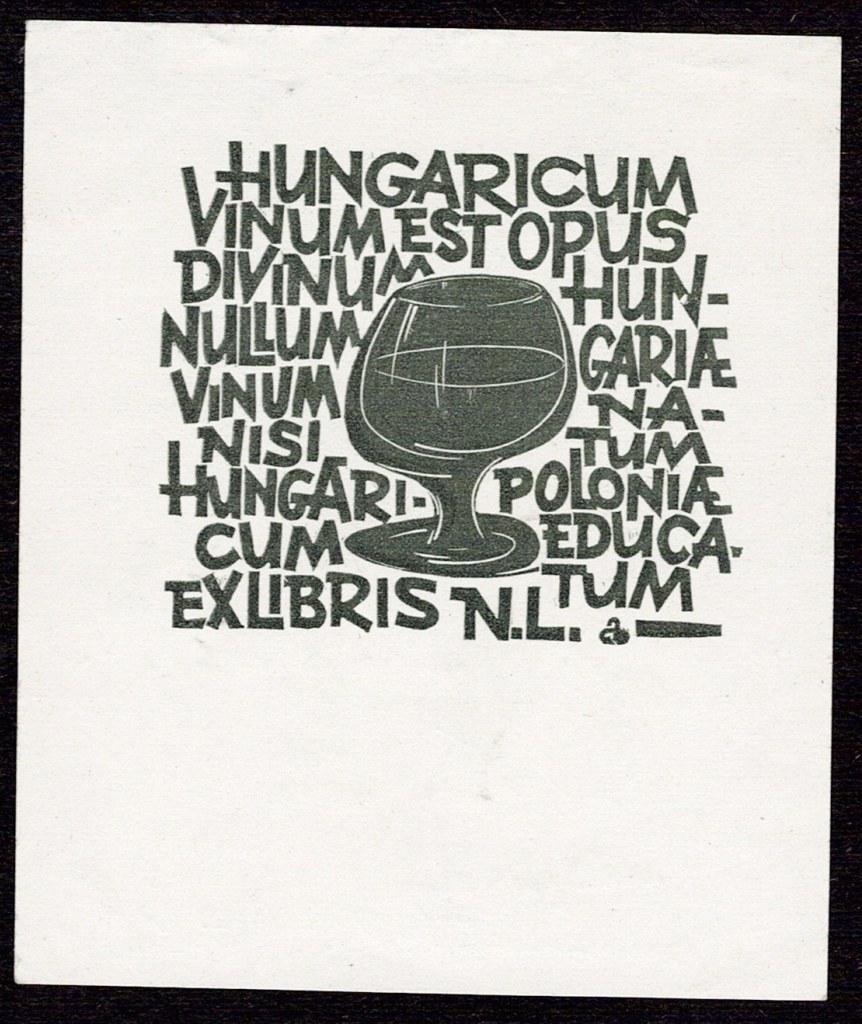 HUNGARICUM
VINUM EST OPUS
DIVINUM
NULLUM
VINUM
NISI
HUNGARI-
CUM
HUN-
GARIÆ
NA-
TUM
POLONIÆ
EDUCA-
TUM
EXLIBRIS N.L.